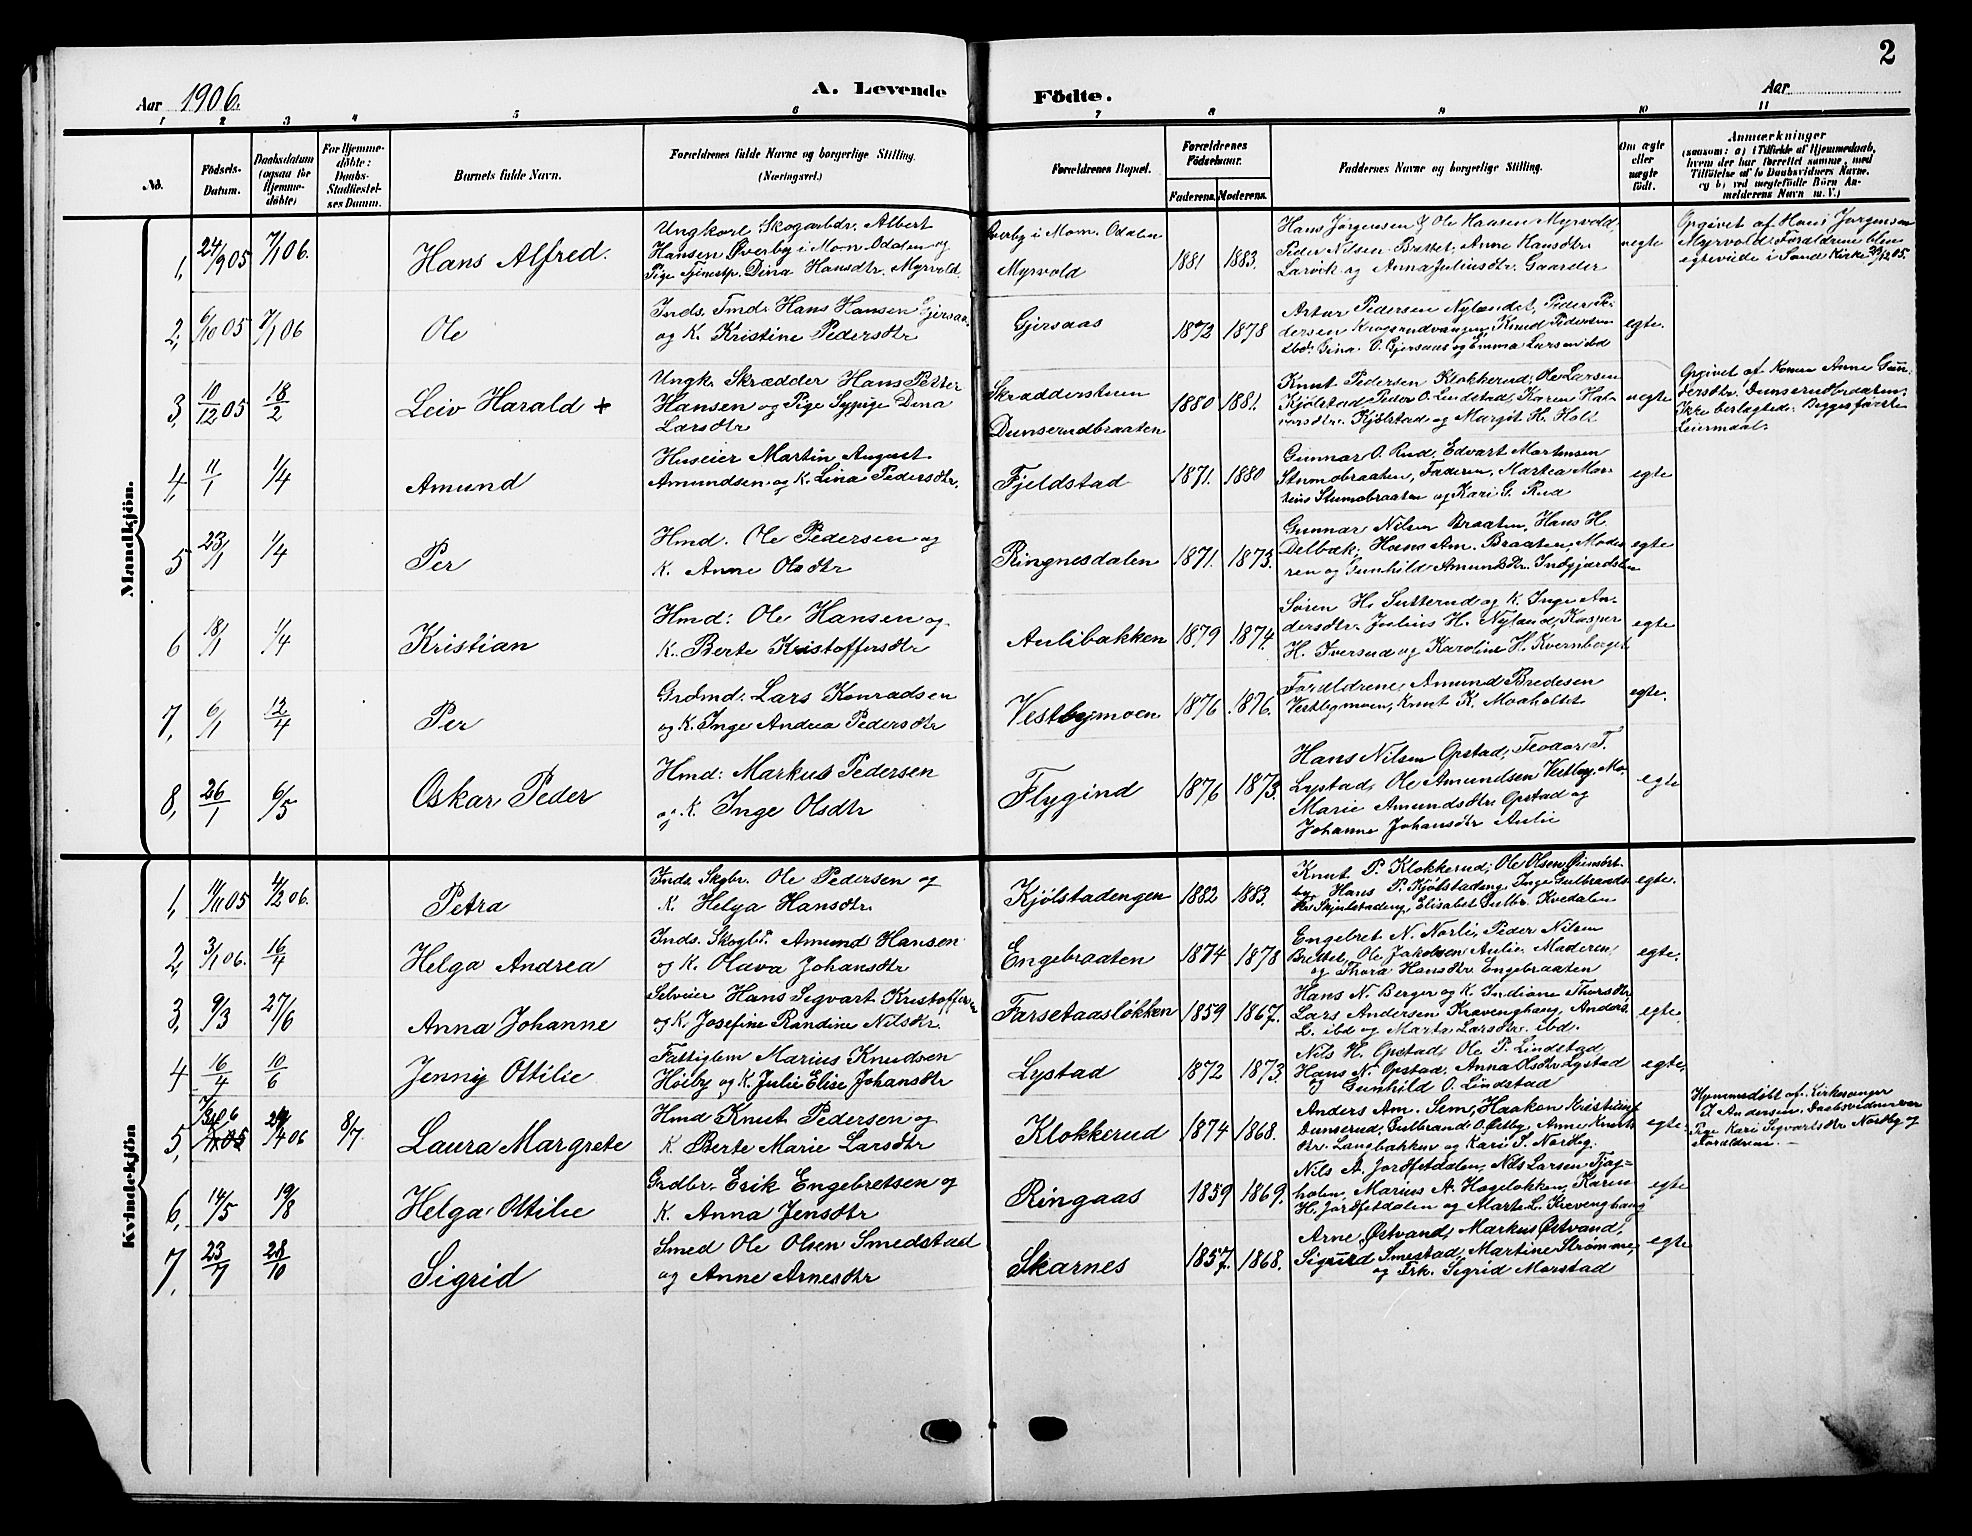 2
Aar 1906.
A. Levende
Födte.
Aar
1 2 3 4 5 6 7 8 9 10 11
No.
Födsels-
Datum.
Daabsdatum
(ogsaa for
Hjemme-
döbte)
For Hjemme-
döbte:
Daabs-
Stadfæstel-
ses Datum.
Barnets fulde Navn.
Forældrenes fulde Navne og borgerlige Stilling.
(Næringsvei.)
Forældrenes Bopæl.
Forældrenes
Födselsaar.
Faderens. Moderens.
Faddernes Navne og borgerlige Stilling.
Om ægte
eller
uægte
födt.
Anmærkninger
(saasom: a) i Tilfælde af Hjemmedaab,
hvem der har forrettet samme, med
Tilföielse af to Daabsvidners Navne.
og b) ved uægtefödte Börn An-
melderens Navn m. V.)
Mandkjön.
1, 24/9 05 7/1 06. Hans Alfred.
Ungkarl Skogarbdr. Albert
Hansen Øverby i Mom. Odalen og
Pige Tjenestp. Dina Hansdtr. Myrvold.
Øverby i Mom. Odalen
Myrvold
1881 1883.
Hans Jørgensen & Ole Hansen Myrvold,
Peder Nilsen Brattet. Anne Hansdtr
Larvik og Anna Juliusdtr. Gaarder
uegte
Opgivet af Hans Jørgensen
Myrvold. Forældrene blev
egteviede i Sand Kirke 29/12 05.
2, 6/10 05 7/1 06 Ole
Inds. Tmd. Hans Hansen Gjersaas
og K. Kristine Pedersdtr
Gjersaas
1872 1878
Artur Pedersen Nylandet, Peder Pe-
dersen Krogsrudvangen, Knud Pedersen
ibd. Grina O. Gjersaas og Emma Larsen ibd
egte.
3, 10/12 05 18/2 Leiv Harald +
Ungk. Skrædder Hans Petter
Hansen og Pige Sypige Dina
Larsdtr
Skrædderstuen
Dunserudbraaten
1880 1881.
Knut Pedersen Klokkerud, Ole Larsen
Kjølstad, Peder O. Lindstad, Karen Hal-
vorsdtr. Kjølstad og Margit H. Holt
uegte
Opgivet af Konen Anne Gun-
dersdtr. Dunserud
Ikke beslægtede. Begges første
Leiermaal.
4, 11/1 1/4 Amund
Huseier Martin August
Amundsen og K. Lina Pedersdtr.
Fjeldstad
1871. 1880
Gunnar O. Rud, Edvart Martinsen
Stumobraaten, Faderen, Martea Mar-
tins Stumobraaten og Kari G. Rud
egte
5 23/1 1/4 Per
Hmd. Ole Pedersen og
K. Anne Olsdtr
Ringnesdalen
1871. 1873.
Gunnar Nilsen Braaten, Hans H.
Delbæk, Hans Am. Braaten, Mode-
ren og Gunhild Amundsdtr.
egte
6 18/1 1/4 Kristian
Hmd: Ole Hansen og
K. Berte Kristoffersdtr
Aulibakken
1879 1874.
Søren H. Sutterud og K. Inge An-
dersdtr. Julius H. Nyland, Kasper
H. Iversud og Karoline H. Kvernberget
egte
7, 6/1 12/4 Per
Grdmd. Lars Konradsen
og K. Inge Andrea Pedersdtr
Vestbymoen
1876 1876.
Forældrene, Amund Bredesen
Vestbymoen, Knut K. Moaholtet
egte.
8, 26/1 6/5 Oskar Peder
Hmd: Markus Pedersen
og K. Inge Olsdtr
Flygind
1876 1873.
Hans Nilsen Opstad, Teodor T.
Lystad, Ole Amundsen Vestby, Mo.
Marie Amundsdtr. Opstad og
Johanne Johansdtr Aulie
egte
Kvindekjön
1, 11/11 05 4/2 06. Petra
Inds. Skgbr. Ole Pedersen og
K. Helga Hansdtr.
Kjølstadengen
1882 1883.
Knut P. Klokkerud, Ole Olsen
by Hans P. Kjølstadeng, Inge Gulbrands-
dtr. Skjølstadeng, Elisabet Gulbr. Kvedalen
egte.
2, 3/1 06. 16/4 Helga Andrea
Inds. Skogbr. Amund Hansen
og K. Olava Johansdtr
Engebraaten
1874 1878
Engebret N. Norli, Peder Nilsen
Brettet, Ole Jakobsen Aulie, Moderen,
og Thora Hansdtr. Engebraaten
egte.
3, 9/3 27/6 Anna Johanne
Selveier Hans Sigvart Kristoffersen
og K. Josefine Randine Nilsdtr.
Farsetaasløkken
1859 1867.
Hans N. Berger og K. Indiane Thorsdtr.
Lars Andersen Krævenghaug, Anders
L. ibd og Marte Larsdtr. ibd.
egte.
4 16/4 10/6 Jenny Ottilie
Fattiglem Marius Knudsen
Høiby og K. Julie Elise Johansdtr
Lystad
1872 1873.
Nils H. Opstad, Ole P. Lindstad,
Hans N. Opstad, Anna Olsdtr Lystad
og Gunhild O. Lindstad
egte.
5, 06 29/4 06 8/7 Laura Margrete
Hmd Knut Pedersen og
K Berte Marie Larsdtr
Klokkerud
1874 1868.
Anders Am. Sem, Haaken Kristians
Dunserud, Gulbrand O. Østby, Anne Knuts-
dtr. Langbakken og Kari S. Nordby.
egte.
Hjemmedøbt af Kirkesanger
J. Andersen. Daabsvidner var
Pige Kari Sigvartsdtr Nordby og
Forældrene. —
6, 14/5 19/8 Helga Ottilie
Grdbr. Erik Engebretsen og
K. Anna Jensdtr
Ringaas
1859 1869.
Nils A. Jordfetdalen, Nils Larsen Fjag-
holen, Marius A. Hageløkken, Karen
H. Jordfetdalen og Marte L. Krevenghaug
egte
7, 23/7 28/10 Sigrid
Smed Ole Olsen Smedstad
og Anne Arnesdtr
Skarnes
1857. 1868.
Arne Østvand, Markus Østvand,
Sigurd Smestad, Martine Strømme,
og Frk. Sigrid Morstad
egte